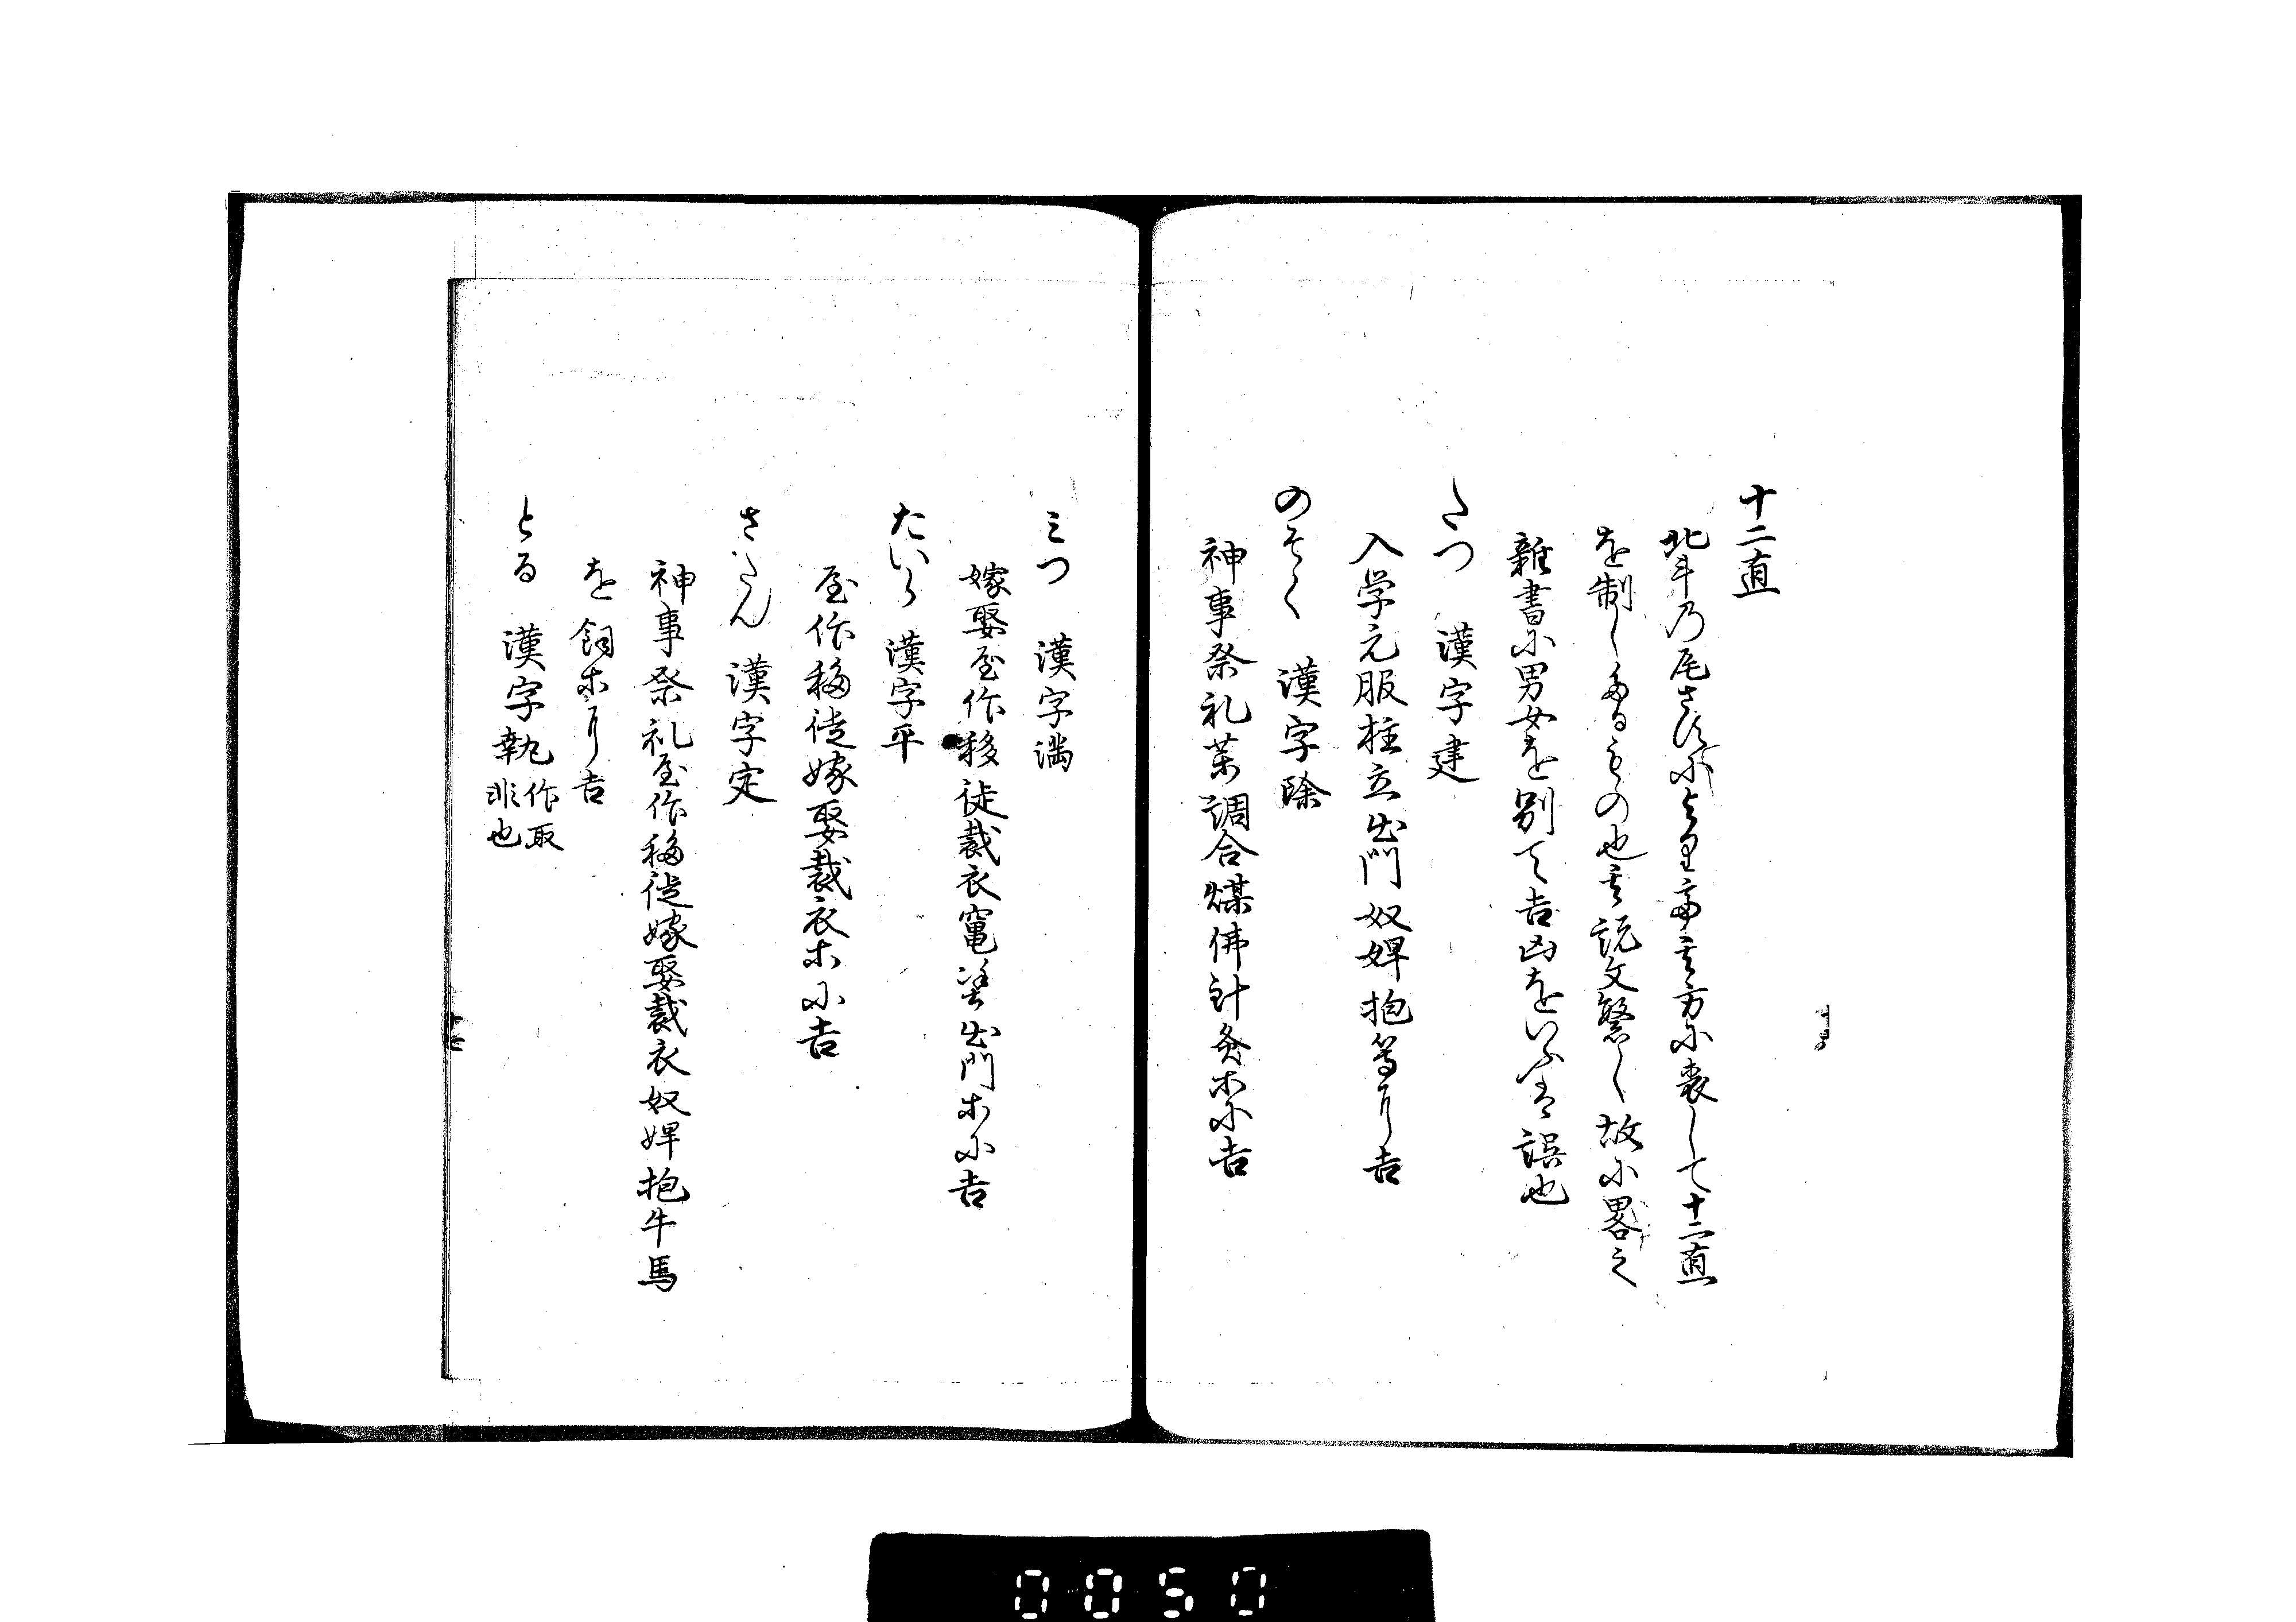 十二直
北斗乃尾さす所により帝其方に表して十二直
を制しあるもの也其説文繁く故に畧之
雑書に男女を別て吉凶をいふは誤也
たつ 漢字建
入学元服柱立出門奴婢抱等に吉
のぞく 漢字除
神事祭礼薬調合煤佛針灸ホに吉
みつ 漢字満
嫁娶屋作移徙裁衣竃塗出門ホに吉
たいら 漢字平
屋作移徙嫁娶裁衣ホに吉
さたん 漢字定
神事祭礼屋作移徙嫁娶裁衣奴婢抱牛馬
を飼ホに吉
とる 漢字執 作取非也
0050